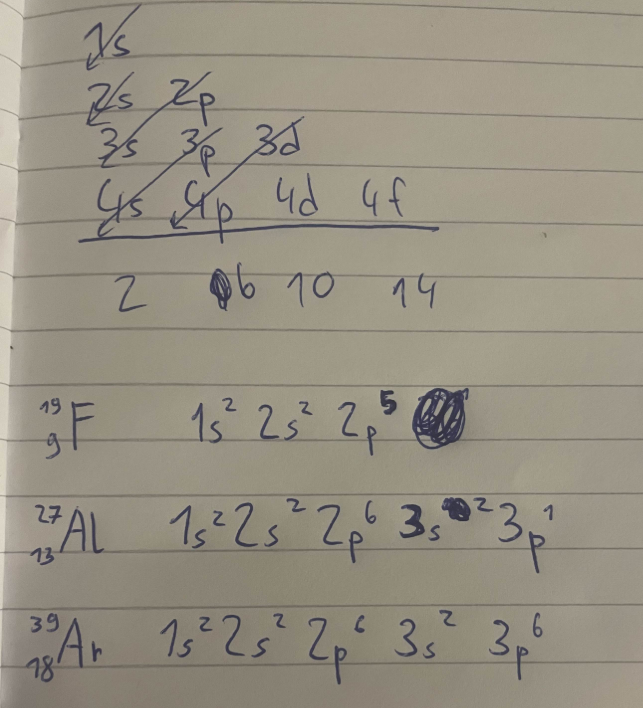 1s
2s 2p
3s 3p 3d
4s 4p 4d 4f
2 6 10 14
¹⁹₉F 1s² 2s² 2p⁵
²⁷₁₃Al 1s² 2s² 2p⁶ 3s² 3p¹
³⁹₁₈Ar 1s² 2s² 2p⁶ 3s² 3p⁶